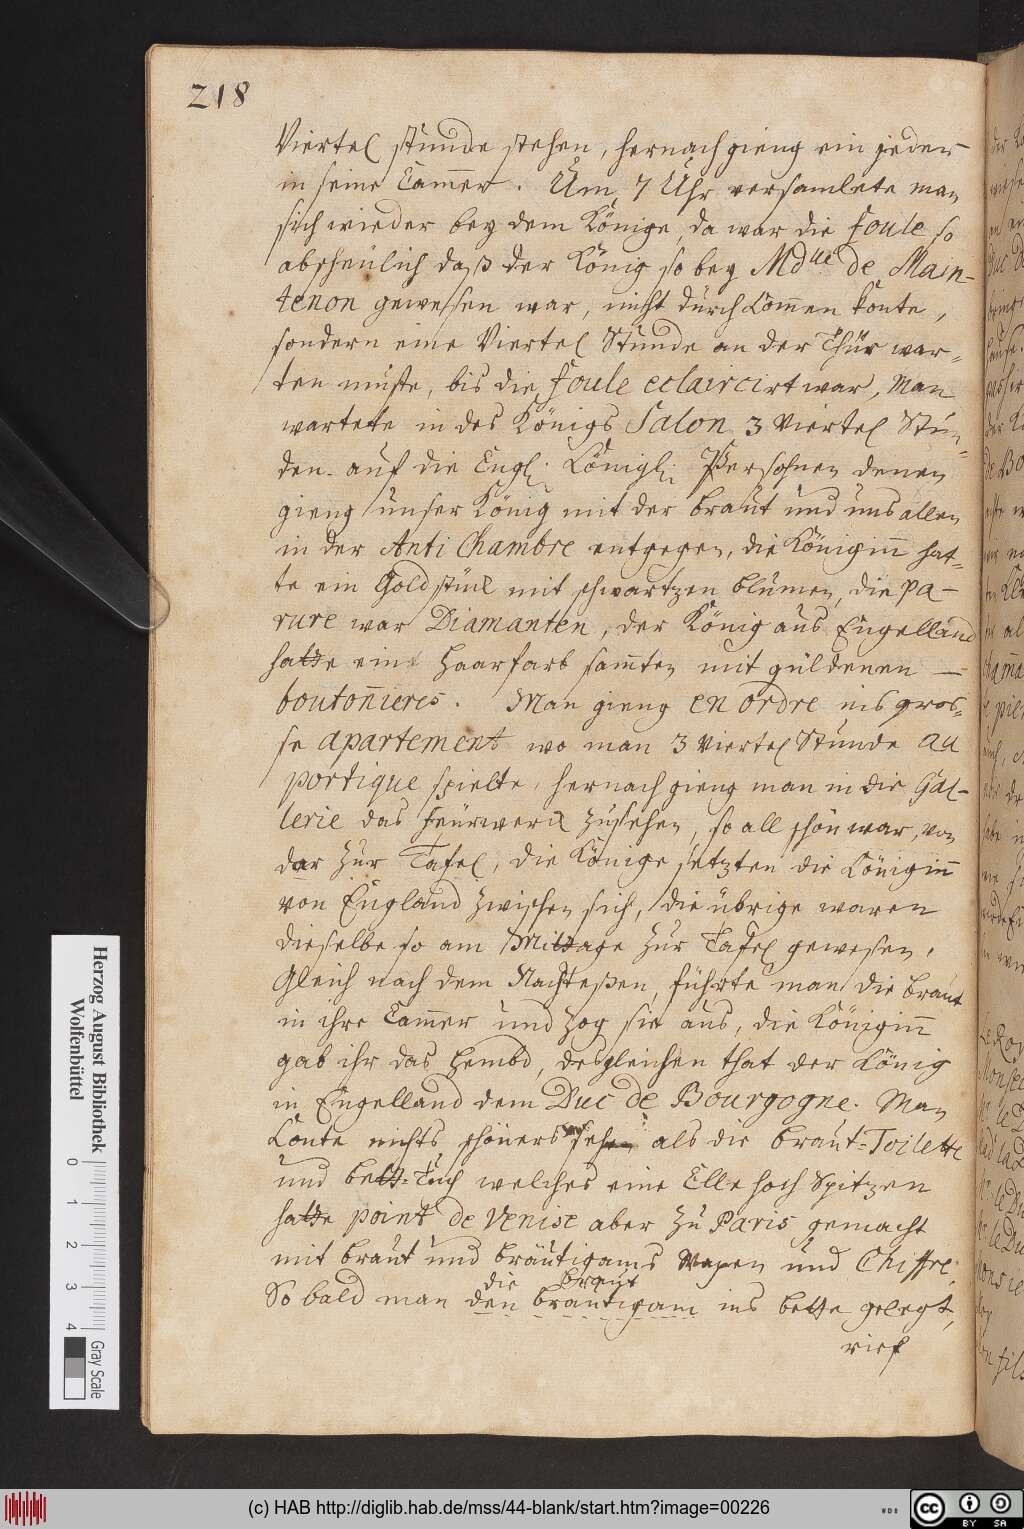 218
Viertel stunde stehen, hernach gieng ein jeder
in seine Cammer. Um 7 Uhr versamlete man
sich wieder bey dem Könige, da war die foule so
abscheülich daß der König so bey Mdme de Main-
tenon gewessen war, nicht durch kommen konte,
sondern eine Viertel Stunde an der Thür war-
ten muste, bis die foule eclaircirt war, Man
wartete in des Königs Salon 3 Viertel Stun-
den auf die Engl: Königl: Persohnen denen
gieng unser König mit der braut und uns allen
in der Anti Chambre entgegen, die Königinn hat-
te ein Goldstück mit schwartzen blumen, die pa-
rure war Diamanten, der König aus Engelland
hatte ein haarfarb samten mit güldenen
boutonnieres. Man gieng en ordre ins gros-
se apartement wo man 3 Viertel Stunde au
portique spielte, hernach gieng man in die Gal-
lerie das feürwerck zusehen, so all schön war, von
dar zur Tafel, die Könige setzten die Königinn
von England zwischen sich, die übrige waren
dieselbe so am Mittage zur Tafel gewesen.
Gleich nach dem Nachteßen, führte man die braut
in ihre Cammer und zog sie aus, die Königinn
gab ihr das hembd, desgleichen that der König
in Engelland dem Duc de Bourgogne. Man
konte nichts schöners sehen als die braut-Toilette
und bett-Tuch welches eine Elle hoch Spitzen
hatte point de Venise aber zu Paris gemacht
mit braut und bräutigams Wapen und Chiffre.
die braut
So bald man den bräutigam ins bette gelegt,
rief
Herzog August Bibliothek
Wolfenbüttel
0 1 2 3 4
Gray Scale
(c) HAB http://diglib.hab.de/mss/44-blank/start.htm?image=00226
WDB
cc BY SA